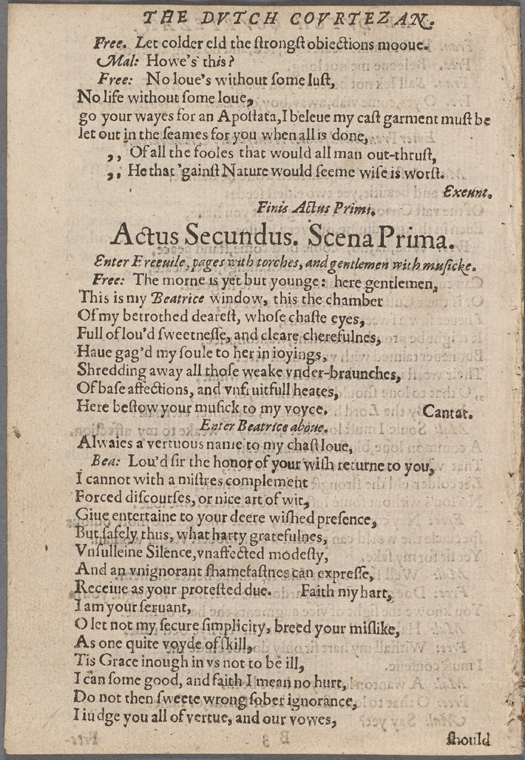 THE DVTCH COVRTEZAN.
Free. Let colder eld the strongst obiections mooue.
Mal: Howe's this?
Free: No loue's without some lust,
No life without some loue,
go your wayes for an Apostata, I beleue my cast garment must be
let out in the seames for you when all is done,
,, Of all the fooles that would all man out-thrust,
,, He that 'gainst Nature would seeme wise is worst.
Exeunt.
Finis Actus Primi.
Actus Secundus. Scena Prima.
Enter Freeuile, pages with torches, and gentlemen with musicke.
Free: The morne is yet but younge: here gentlemen,
This is my Beatrice window, this the chamber
Of my betrothed dearest, whose chaste eyes,
Full of lou'd sweetnesse, and cleare cherefulnes,
Haue gag'd my soule to her in ioyings,
Shredding away all those weake vnder-braunches,
Of base affections, and vnfruitfull heates,
Here bestow your musick to my voyce. Cantat.
Enter Beatrice aboue.
Alwaies a vertuous name to my chast loue,
Bea: Lou'd sir the honor of your wish returne to you,
I cannot with a mistres complement
Forced discourses, or nice art of wit,
Giue entertaine to your deere wished presence,
But safely thus, what harty gratefulnes,
Vnsulleine Silence, vnaffected modesty,
And an vnignorant shamefastnes can expresse,
Receiue as your protested due. Faith my hart,
I am your seruant,
O let not my secure simplicity, breed your mislike,
As one quite voyde of skill,
Tis Grace inough in vs not to be ill,
I can some good, and faith I mean no hurt,
Do not then sweete wrong sober ignorance,
I iudge you all of vertue, and our vowes,
should